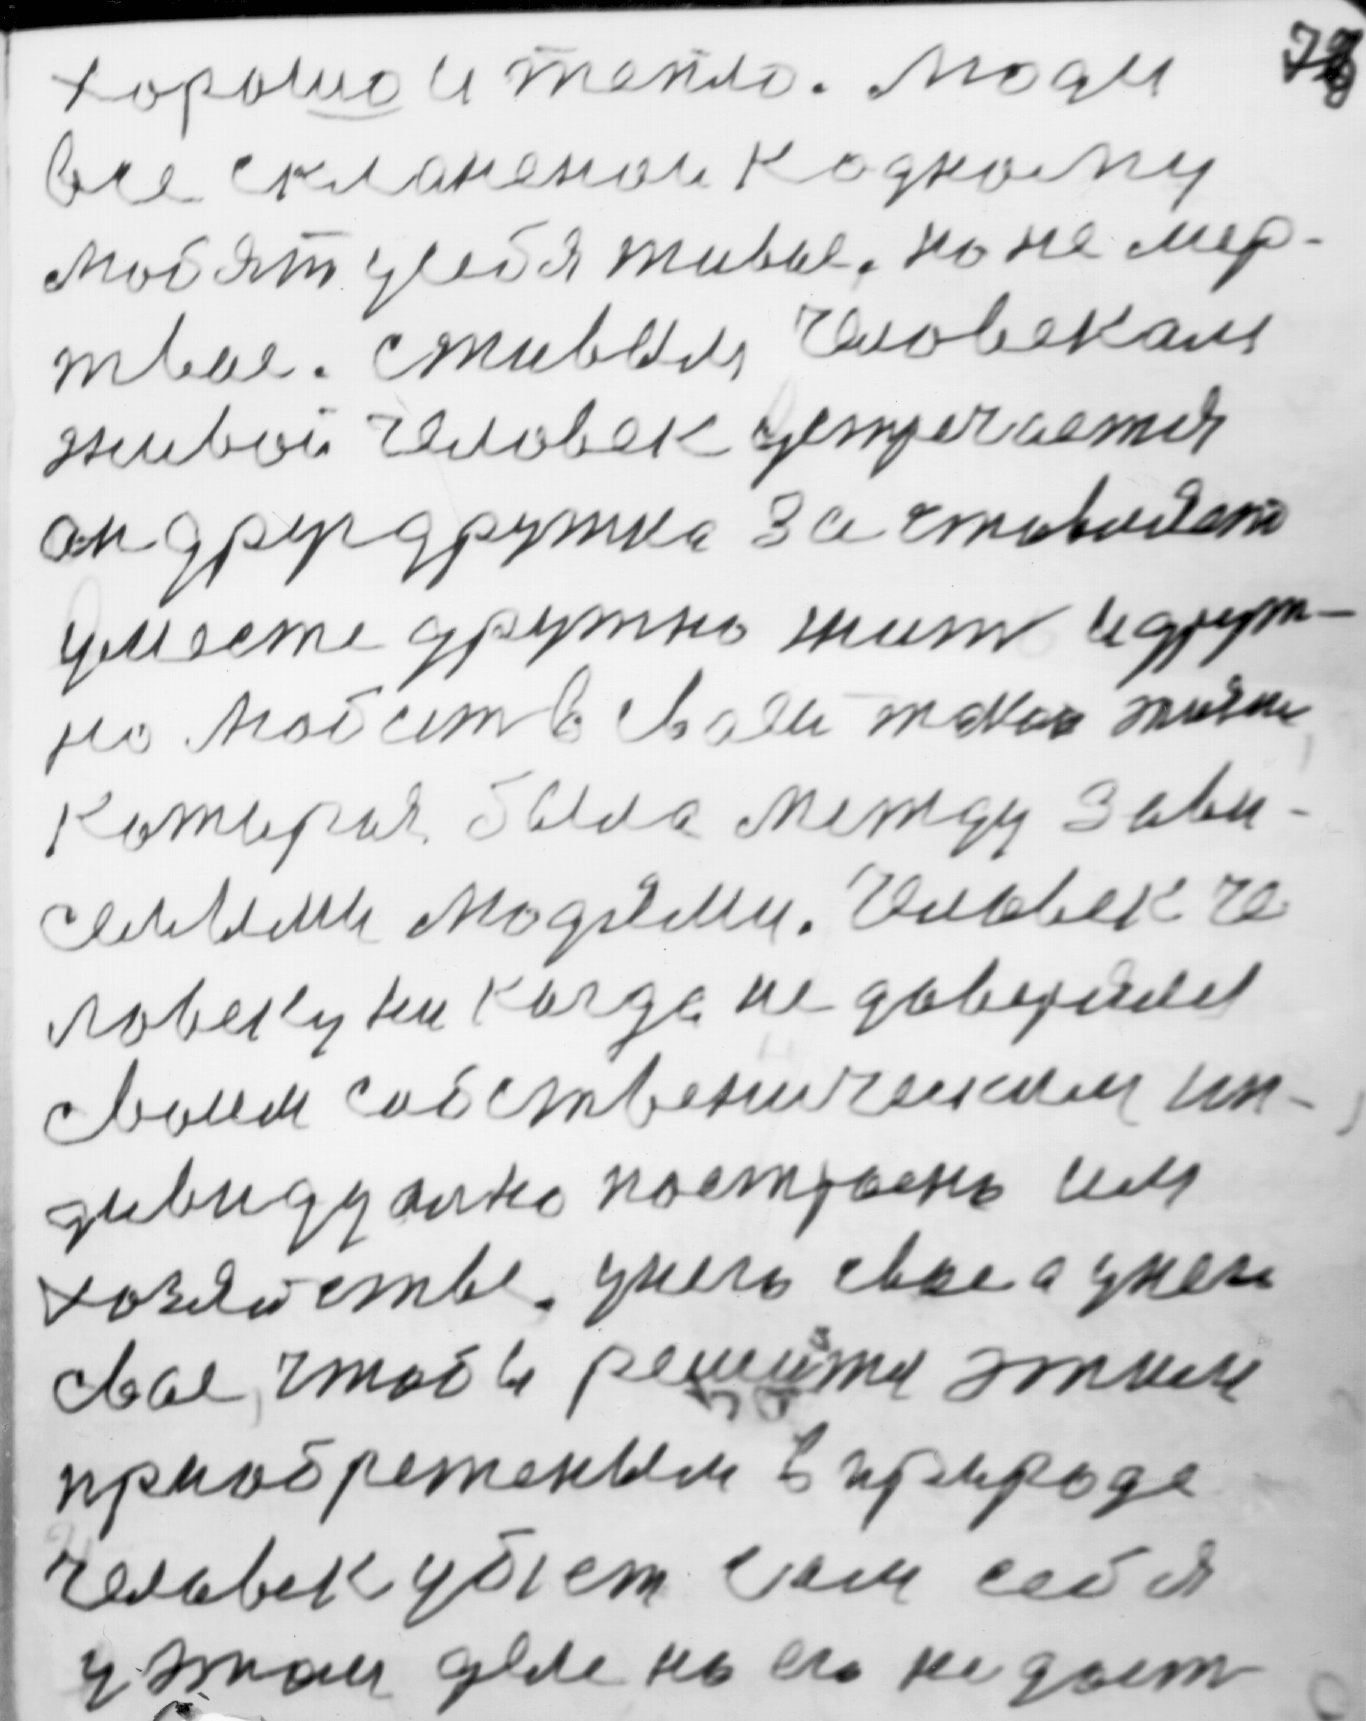 хорошо и тепло. Люди
все скланенои к одному
любят у себя живые. но не мер-
твое. с живым человекам
живой человек устречается
он друг дружка заставляет
уместе дружно жить и друж-
но любить в своеи такои жизни
которая была между зави-
селыми людями. Человек че
ловеку ни когда не доверялся
своим собственическим ин-
дивидуално построень им
хозяйстве. у него свое а у него
свое, чтобы решится этим
приобретеным в природе
Человек убiет сам себя
у этом деле но его не дает